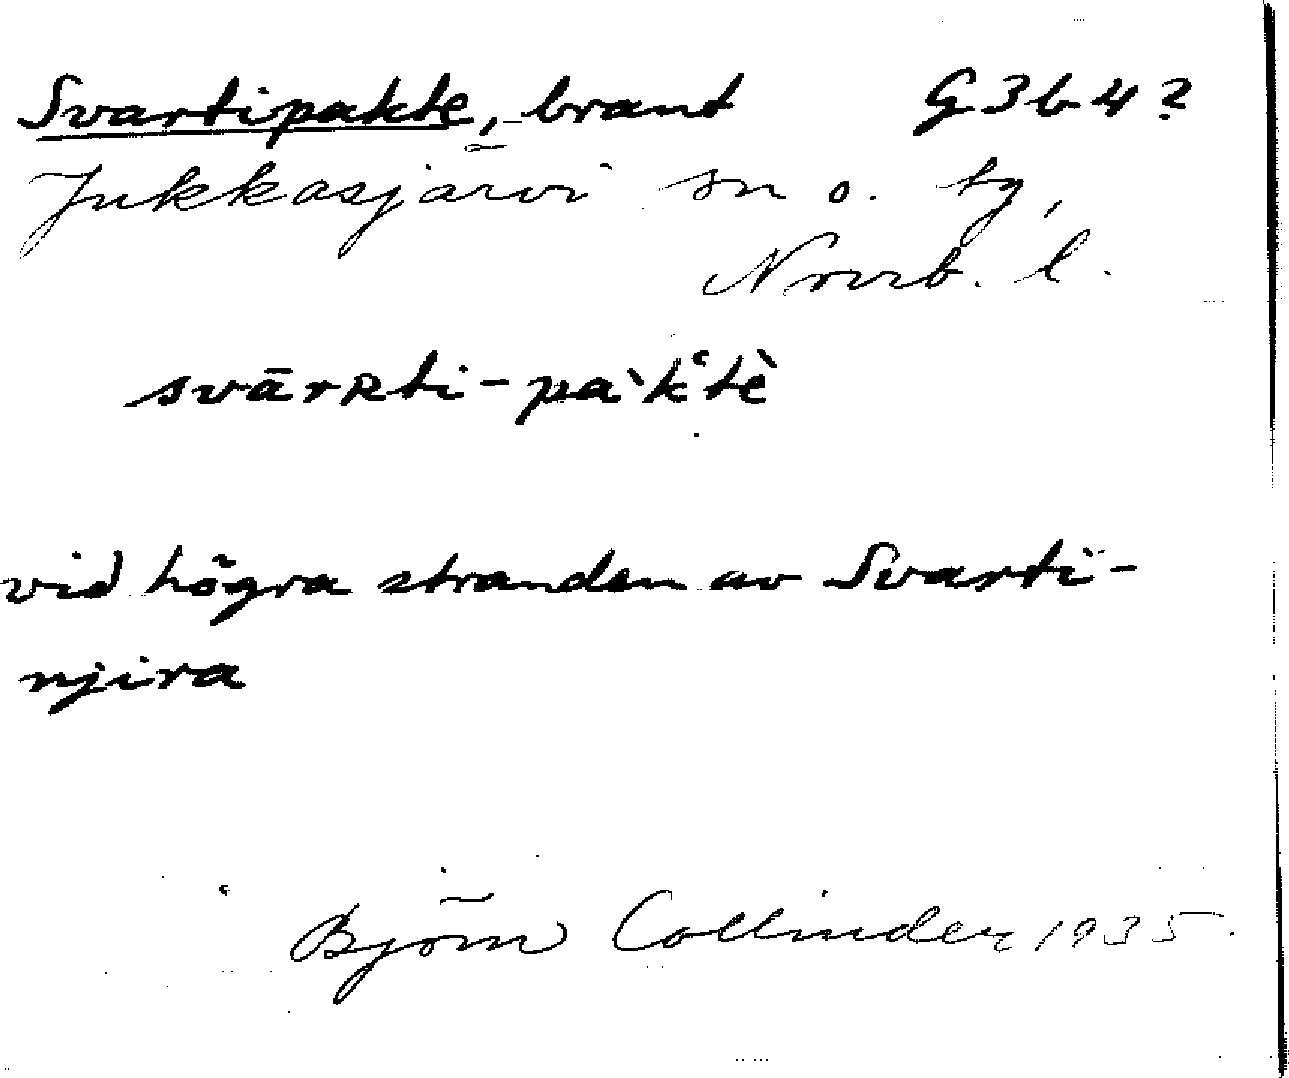 Svartipakte, brant G 3 b 4 ?
Jukkasjärvi sn o. tg,
Norrb. l.
svārʀti-pàˋk̔tè
vid högra stranden av Svarti-
njira
Björn Collinder 1935.